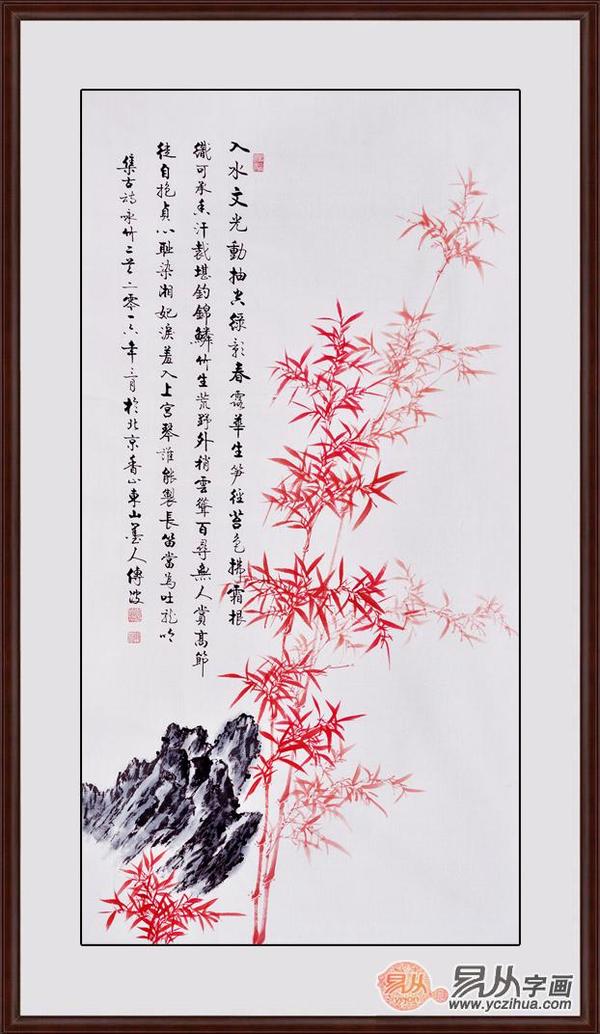 入水文光動抽空綠影春露華生筍徑苔色拂霜根
織可承香汗裁堪釣錦鱗竹生荒野外梢雲聳百尋無人賞高節
徒自抱貞心恥染湘妃淚羞入上宮琴誰能製長笛當為吐龍吟
集古詩咏竹二首二零一六年三月於北京香山東山墨人傅波
易从
易从字画
www.yczihua.com